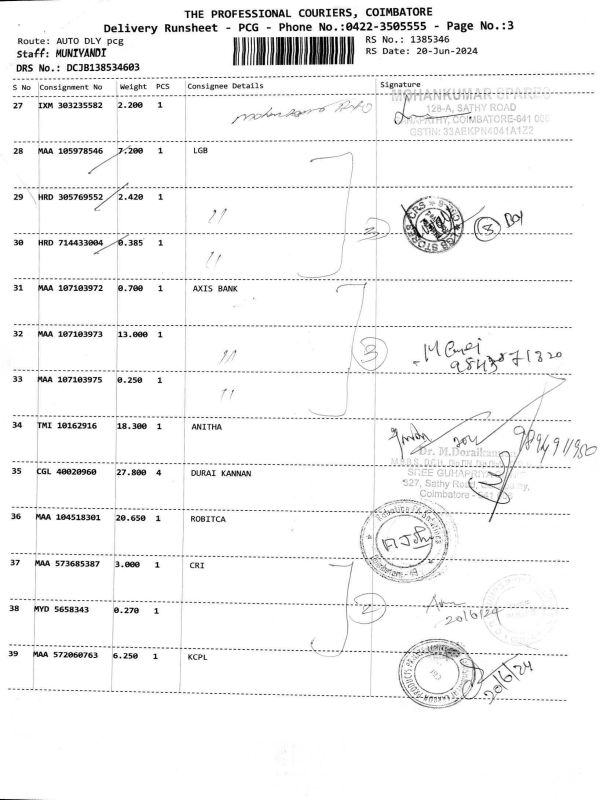 THE PROFESSIONAL COURIERS, COIMBATORE
Delivery Runsheet - PCG - Phone No.:0422-3505555 - Page No.:3
Route: AUTO DLY pcg
RS No.: 1385346
Staff: MUNIYANDI
RS Date: 20-Jun-2024
DRS No.: DCJB138534603
S No Consignment No Weight PCS Consignee Details Signature
27 IXM 303235582 2.200 1
MOHANKUMAR SPARES
128-A, SATHY ROAD
GANAPATHY, COIMBATORE-641 006
GSTIN: 33AEKPN4041A1Z2
28 MAA 105978546 7.200 1 LGB
29 HRD 305769552 2.420 1 〃
LGB STORES CRS
8 BOX
30 HRD 714433004 0.385 1 〃
31 MAA 107103972 0.700 1 AXIS BANK
32 MAA 107103973 13.000 1 〃
3
33 MAA 107103975 0.250 1 〃
34 TMI 10162916 18.300 1 ANITHA
Dr. M.Doraikannan
35 CGL 40020960 27.800 4 DURAI KANNAN
SREE GUHAPRIYA
327, Sathy Road,
Coimbatore - 641
36 MAA 104518301 20.650 1 ROBITCA
37 MAA 573685387 3.000 1 CRI
2
38 MYD 5658343 0.270 1
20/6/24
39 MAA 572060763 6.250 1 KCPL
20/6/24